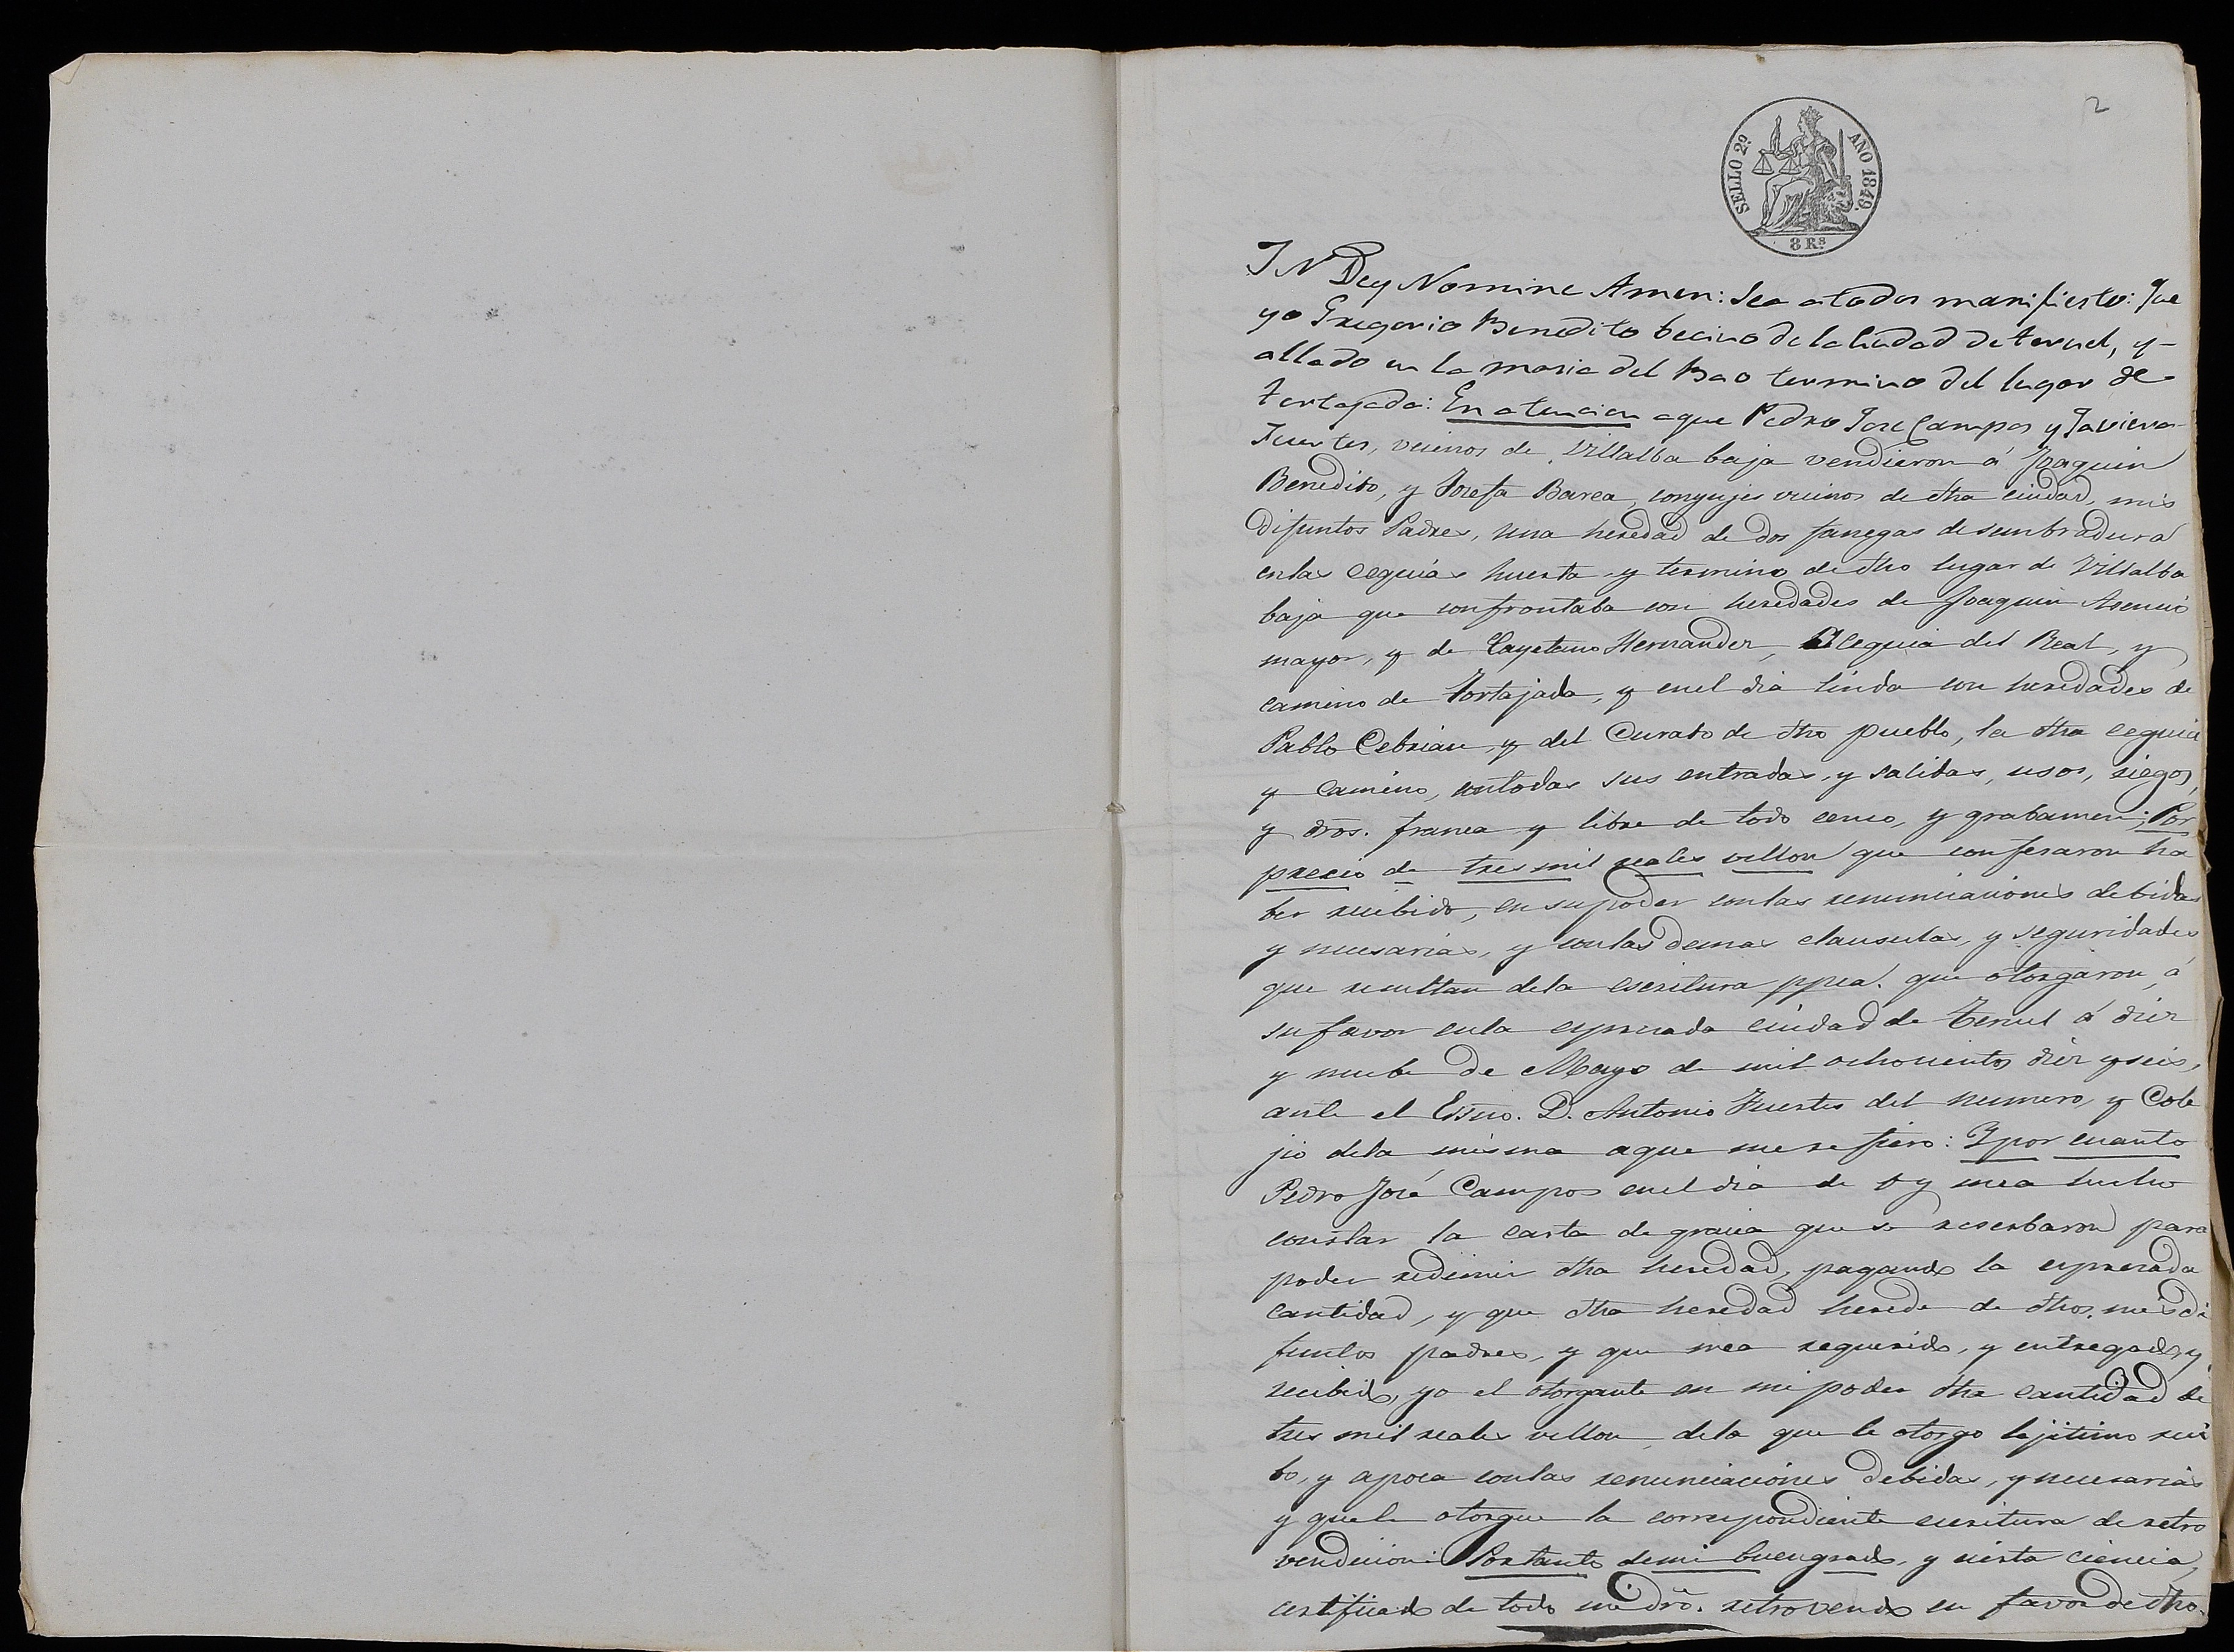 2
SELLO 2º AÑO 1849.
8 Rs
IN Dey Nomine Amen: Sea atodos manifiesto: Que
yo Gregorio Benedito becino de la Ciudad de teruel, y
allado en la masia del Bao termino del lugar de
tortajada: En atencion aque Pedro Jose Campos y Javiera
Fuertes, vecinos de Villalba baja vendieron á Joaquin
Benedito, y Josefa Barea conyujes vecinos de dha ciudad, mis
difuntos Padres, una heredad de dos fanegas de sembradura
enlas cequias huerta y termino de dho lugar de Villalba
baja que confrontaba con heredades de Joaquin Asencio
mayor, y de Cayetano Hernandez, Acequia del Real, y
camino de Tortajada, y enel dia linda con heredades de
Pablo Cebrian, y del Curato de dho pueblo, la dha cequia
y Camino, contodas sus entradas, y salidas, usos, riegos,
y dros. franca y libre de todo censo, y grabamen; Por
precio de tres mil reales vellon que confesaron ha
ber recibido, en supoder conlas renunciaciones debidas
y necesarias, y conlas demas clausulas, y seguridades
que resultan dela escritura ppca. que otorgaron, á
sufavor enla espresada ciudad de Teruel á diez
y nuebe de Mayo de mil ochocientos diez y seis,
ante el Essno. D. Antonio Fuertes del numero, y Cole
jio dela misma aque merefiero: Ypor cuanto
Pedro José Campos enel dia de oy mea hecho
constar la carta de gracia que se reserbaron para
poder redimir dha heredad, pagando la espresada
cantidad, y que dha heredad herede de dhos. mis di
funtos padres, y que mea requerido, y entregado, y
recibido, yo el otorgante en mipoder dha cantidad de
tres mil reales vellon, dela que le otorgo lejitimo reci
bo, y apoca conlas renunciaciones debidas, y necesarias
y quele otorgue la correspondiente escritura de retro
vendicion: Portanto demi buengrado, y cierta ciencia,
certificado de todo mi dro. retrovendo en favor de dho.